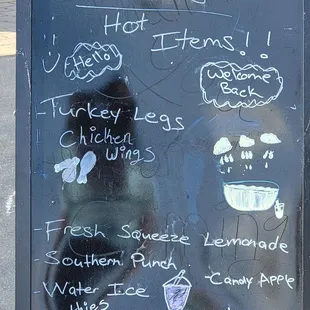 Hot
Items!!
!! Hello!
Welcome
Back
- Turkey Legs
Chicken
Wings
- Fresh Squeeze Lemonade
- Southern Punch
- Candy Apple
- Water Ice